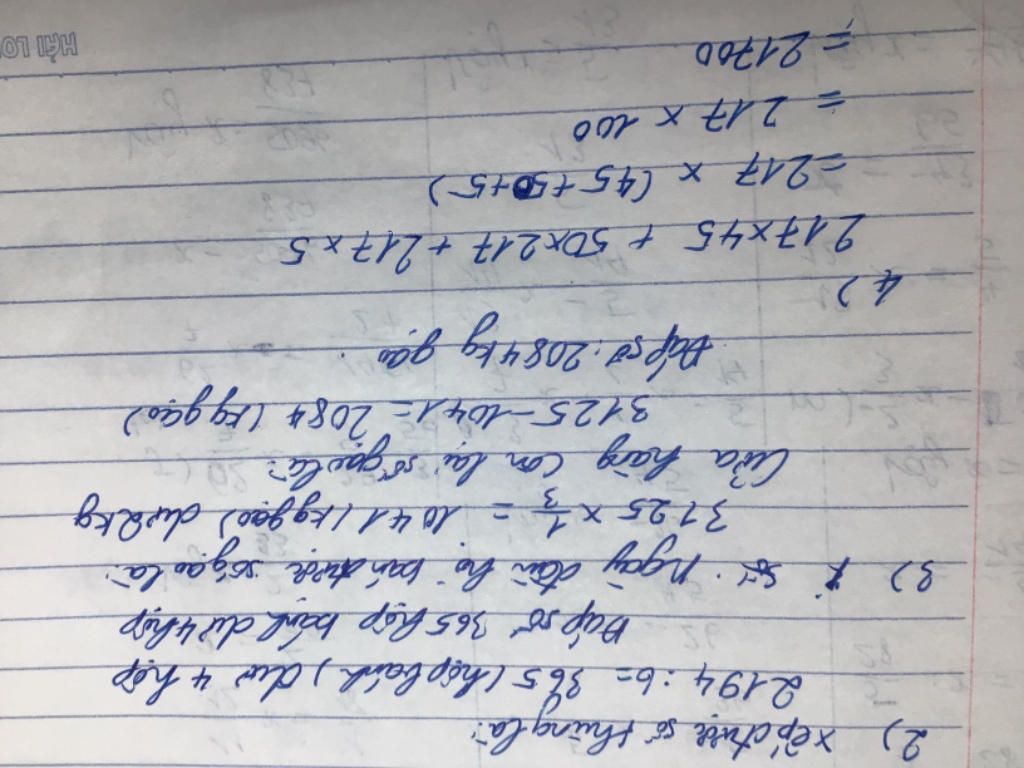 2) xếp được số thùng là:
2194 : 6 = 365 (hộp bánh) dư 4 hộp
Đáp số 365 hộp bánh dư 4 hộp
3) ngày đầu họ bán được số gạo là:
3125 × 1/3 = 1041 (kg gạo) dư 2kg
Cửa hàng còn lại số gạo là:
3125 - 1041 = 2084 (kg gạo)
Đáp số: 2084 kg gạo.
4)
217 × 45 + 50 × 217 + 217 × 5
= 217 × (45 + 50 + 5)
= 217 × 100
= 21700
HẢI LO